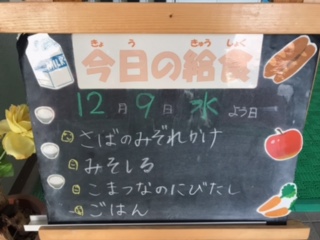 きょう きゅうしょく
今日の給食
MILK
12月9日 水 よう日
さばのみぞれかけ
みそしる
こまつなのにびたし
ごはん